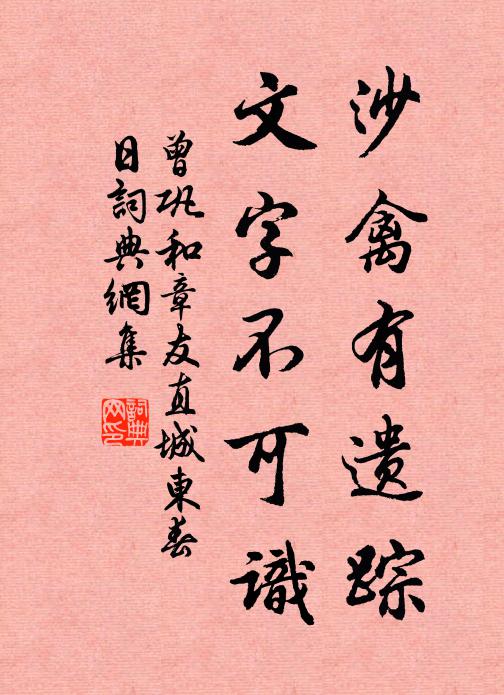 沙禽有遗踪
文字不可識
曾巩和章友直城東春
日詞典網集
詞典
网印